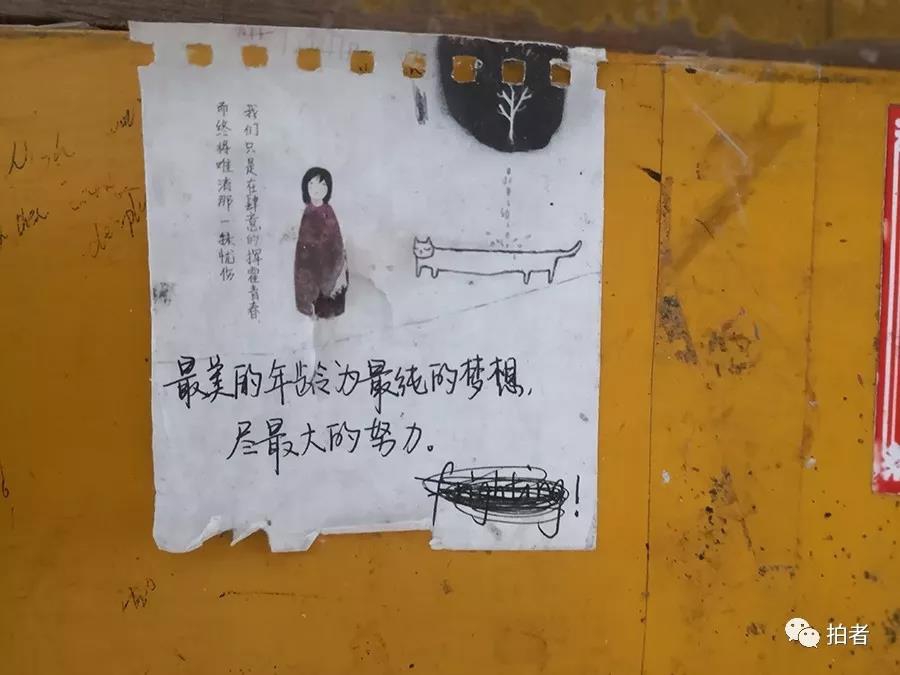 我们只是在肆意的挥霍青春
而终将唯渍那一抹忧伤
最美的年龄为最纯的梦想，
尽最大的努力。
拍者